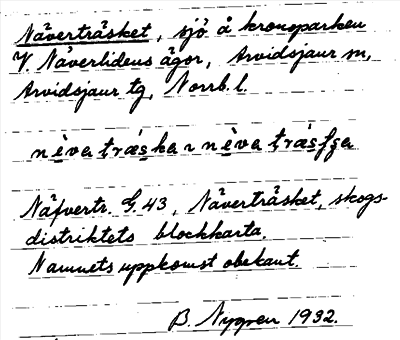 Näverträsket, sjö å kronoparken
V. Näverlidens ägor, Arvidsjaur sn,
Arvidsjaur tg, Norrb. l.
nèva træska ~ nèva
Näfvertr. G. 43, Näverträsket, skogs-
distriktets blockkarta.
Namnets uppkomst obekant.
B. Nygren 1932.